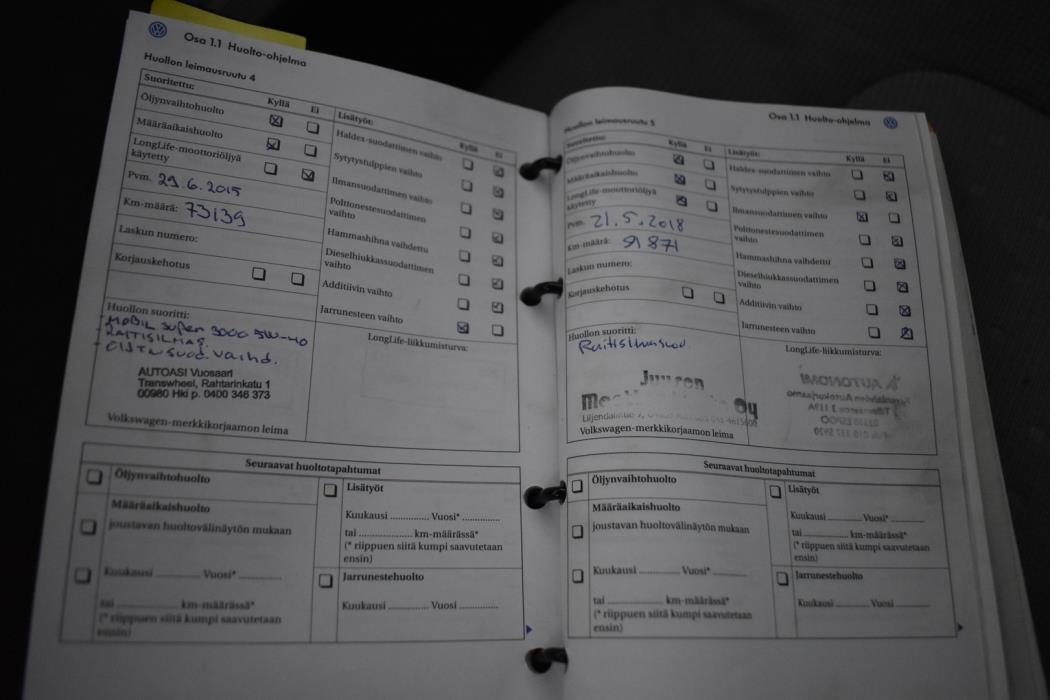 Osa 1.1 Huolto-ohjelma
Huollon leimausruutu 4
Suoritettu: Kyllä Ei
Öljynvaihtohuolto
Määräaikaishuolto
LongLife-moottoriöljyä
käytetty
Pvm. 29.6.2015
Km-määrä: 73139
Laskun numero:
Korjauskehotus
Huollon suoritti:
MOBIL super 3000 5W-40
RAITISILMAS.
ÖLJYNSUOD. vaihd.
AUTOASI Vuosaari
Transwheel, Rahtarinkatu 1
00980 Hki p. 0400 346 373
Volkswagen-merkkikorjaamon leima
Lisätyöt: Kyllä Ei
Haldex-suodattimen vaihto
Sytytystulppien vaihto
Ilmansuodattimen vaihto
Polttonestesuodattimen
vaihto
Hammashihna vaihdettu
Dieselhiukkassuodattimen
vaihto
Additiivin vaihto
Jarrunesteen vaihto
LongLife-liikkumisturva:
Seuraavat huoltotapahtumat
Öljynvaihtohuolto
Määräaikaishuolto
joustavan huoltovälinäytön mukaan
Kuukausi .............. Vuosi* ..............
tai .................... km-määrässä*
(* riippuen siitä kumpi saavutetaan
ensin)
Lisätyöt
Kuukausi .............. Vuosi* ..............
tai .................... km-määrässä*
(* riippuen siitä kumpi saavutetaan
ensin)
Jarrunestehuolto
Kuukausi .............. Vuosi ..............
Osa 1.1 Huolto-ohjelma
Huollon leimausruutu 5
Suoritettu: Kyllä Ei
Öljynvaihtohuolto
Määräaikaishuolto
LongLife-moottoriöljyä
käytetty
Pvm. 21.5.2018
Km-määrä: 91871
Laskun numero:
Korjauskehotus
Huollon suoritti:
Raitisilmasuod.
Juuson
Oy
Volkswagen-merkkikorjaamon leima
Lisätyöt: Kyllä Ei
Haldex-suodattimen vaihto
Sytytystulppien vaihto
Ilmansuodattimen vaihto
Polttonestesuodattimen
vaihto
Hammashihna vaihdettu
Dieselhiukkassuodattimen
vaihto
Additiivin vaihto
Jarrunesteen vaihto
LongLife-liikkumisturva:
AUTONOMI
Seuraavat huoltotapahtumat
Öljynvaihtohuolto
Määräaikaishuolto
joustavan huoltovälinäytön mukaan
Kuukausi .............. Vuosi* ..............
tai .................... km-määrässä*
(* riippuen siitä kumpi saavutetaan
ensin)
Lisätyöt
Kuukausi .............. Vuosi* ..............
tai .................... km-määrässä*
(* riippuen siitä kumpi saavutetaan
ensin)
Jarrunestehuolto
Kuukausi .............. Vuosi ..............